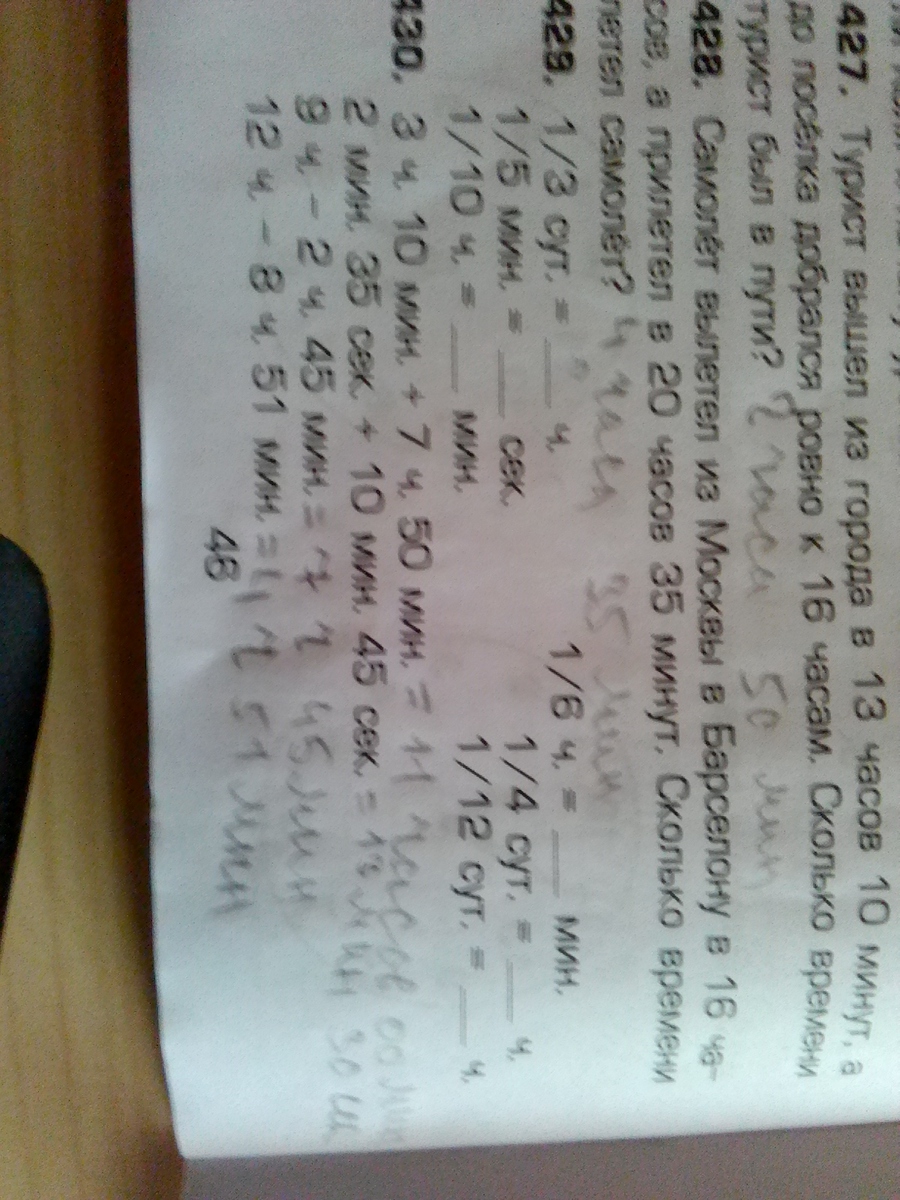 427. Турист вышел из города в 13 часов 10 минут, а
до посёлка добрался ровно к 16 часам. Сколько времени
турист был в пути? 2 часа 50 мин
428. Самолёт вылетел из Москвы в Барселону в 16 ча-
сов, а прилетел в 20 часов 35 минут. Сколько времени
летел самолёт? 4 часа 35 мин
429. 1/3 сут. = ___ ч. 1/6 ч. = ___ мин.
1/5 мин. = ___ сек. 1/4 сут. = ___ ч.
1/10 ч. = ___ мин. 1/12 сут. = ___ ч.
430. 3 ч. 10 мин. + 7 ч. 50 мин. = 11 часов
2 мин. 35 сек. + 10 мин. 45 сек. = мин 30
9 ч. – 2 ч. 45 мин. = 7 ч 45 мин
12 ч. – 8 ч. 51 мин. = 4 ч 51 мин
46